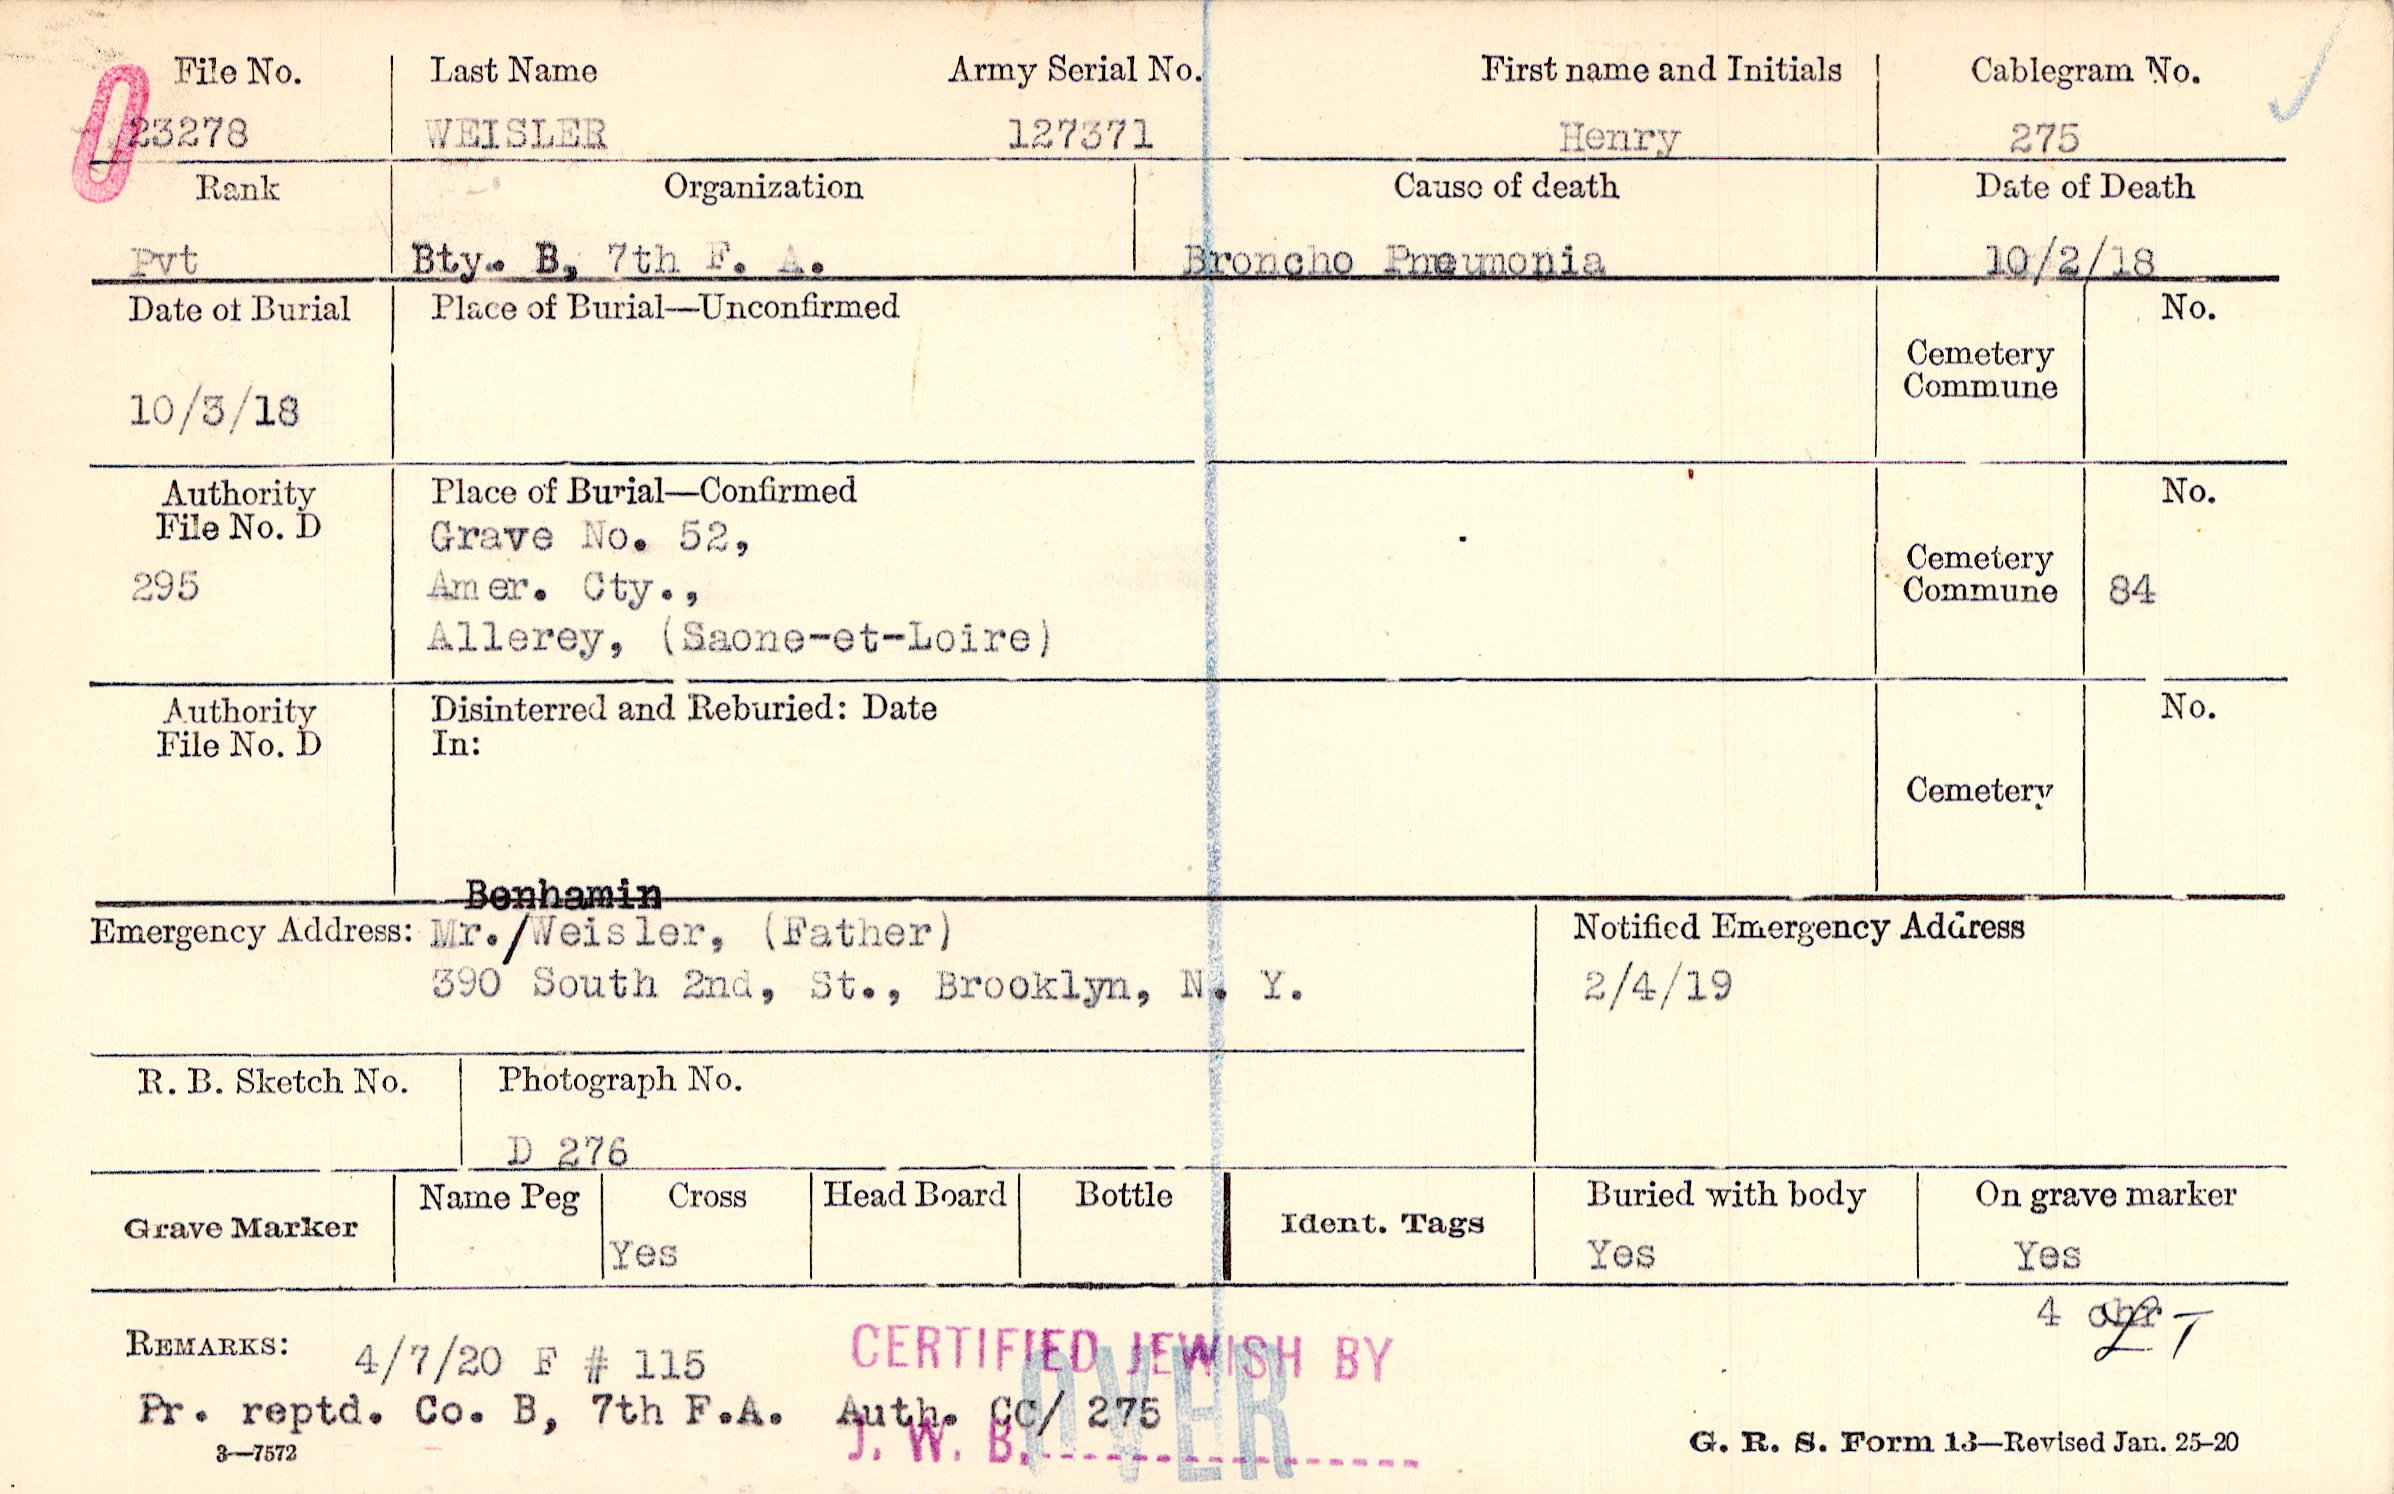 File No. Last Name Army Serial No. First name and Initials Cablegram No.
23278 WEISLER 127371 Henry 275
Rank Organization Cause of death Date of Death
Pvt Bty. B, 7th F. A. Broncho Pneumonia 10/2/18
Date of Burial Place of Burial—Unconfirmed No.
Cemetery
Commune
10/3/18
Authority Place of Burial—Confirmed No.
File No. D Grave No. 52,
295 Amer. Cty., Cemetery
Commune 84
Allerey, (Saone-et-Loire)
Authority Disinterred and Reburied: Date No.
File No. D In:
Cemetery
Benhamin
Emergency Address: Mr./Weisler, (Father) Notified Emergency Address
390 South 2nd, St., Brooklyn, N. Y. 2/4/19
R. B. Sketch No. Photograph No.
D 276
Grave Marker Name Peg Cross Head Board Bottle Ident. Tags Buried with body On grave marker
Yes Yes Yes
4
REMARKS: 4/7/20 F # 115 CERTIFIED JEWISH BY
Pr. reptd. Co. B, 7th F.A. Auth. Cc/ 275
J. W. B.
OVER
3—7572 G. R. S. Form 13—Revised Jan. 25-20